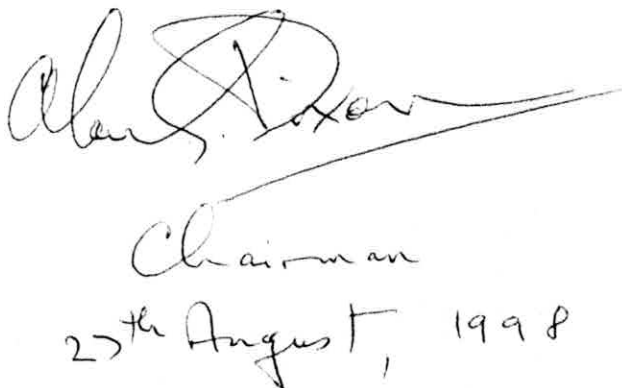 Alan G. Dixon
Chairman
27th August, 1998